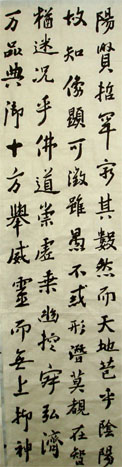 陽賢哲罕窮其數然而天地苞乎陰陽
故知像顯可徵雖愚不惑形潛莫覩在智
猶迷況乎佛道崇虛乘幽控寂弘濟
万品典御十方舉威靈而無上抑神